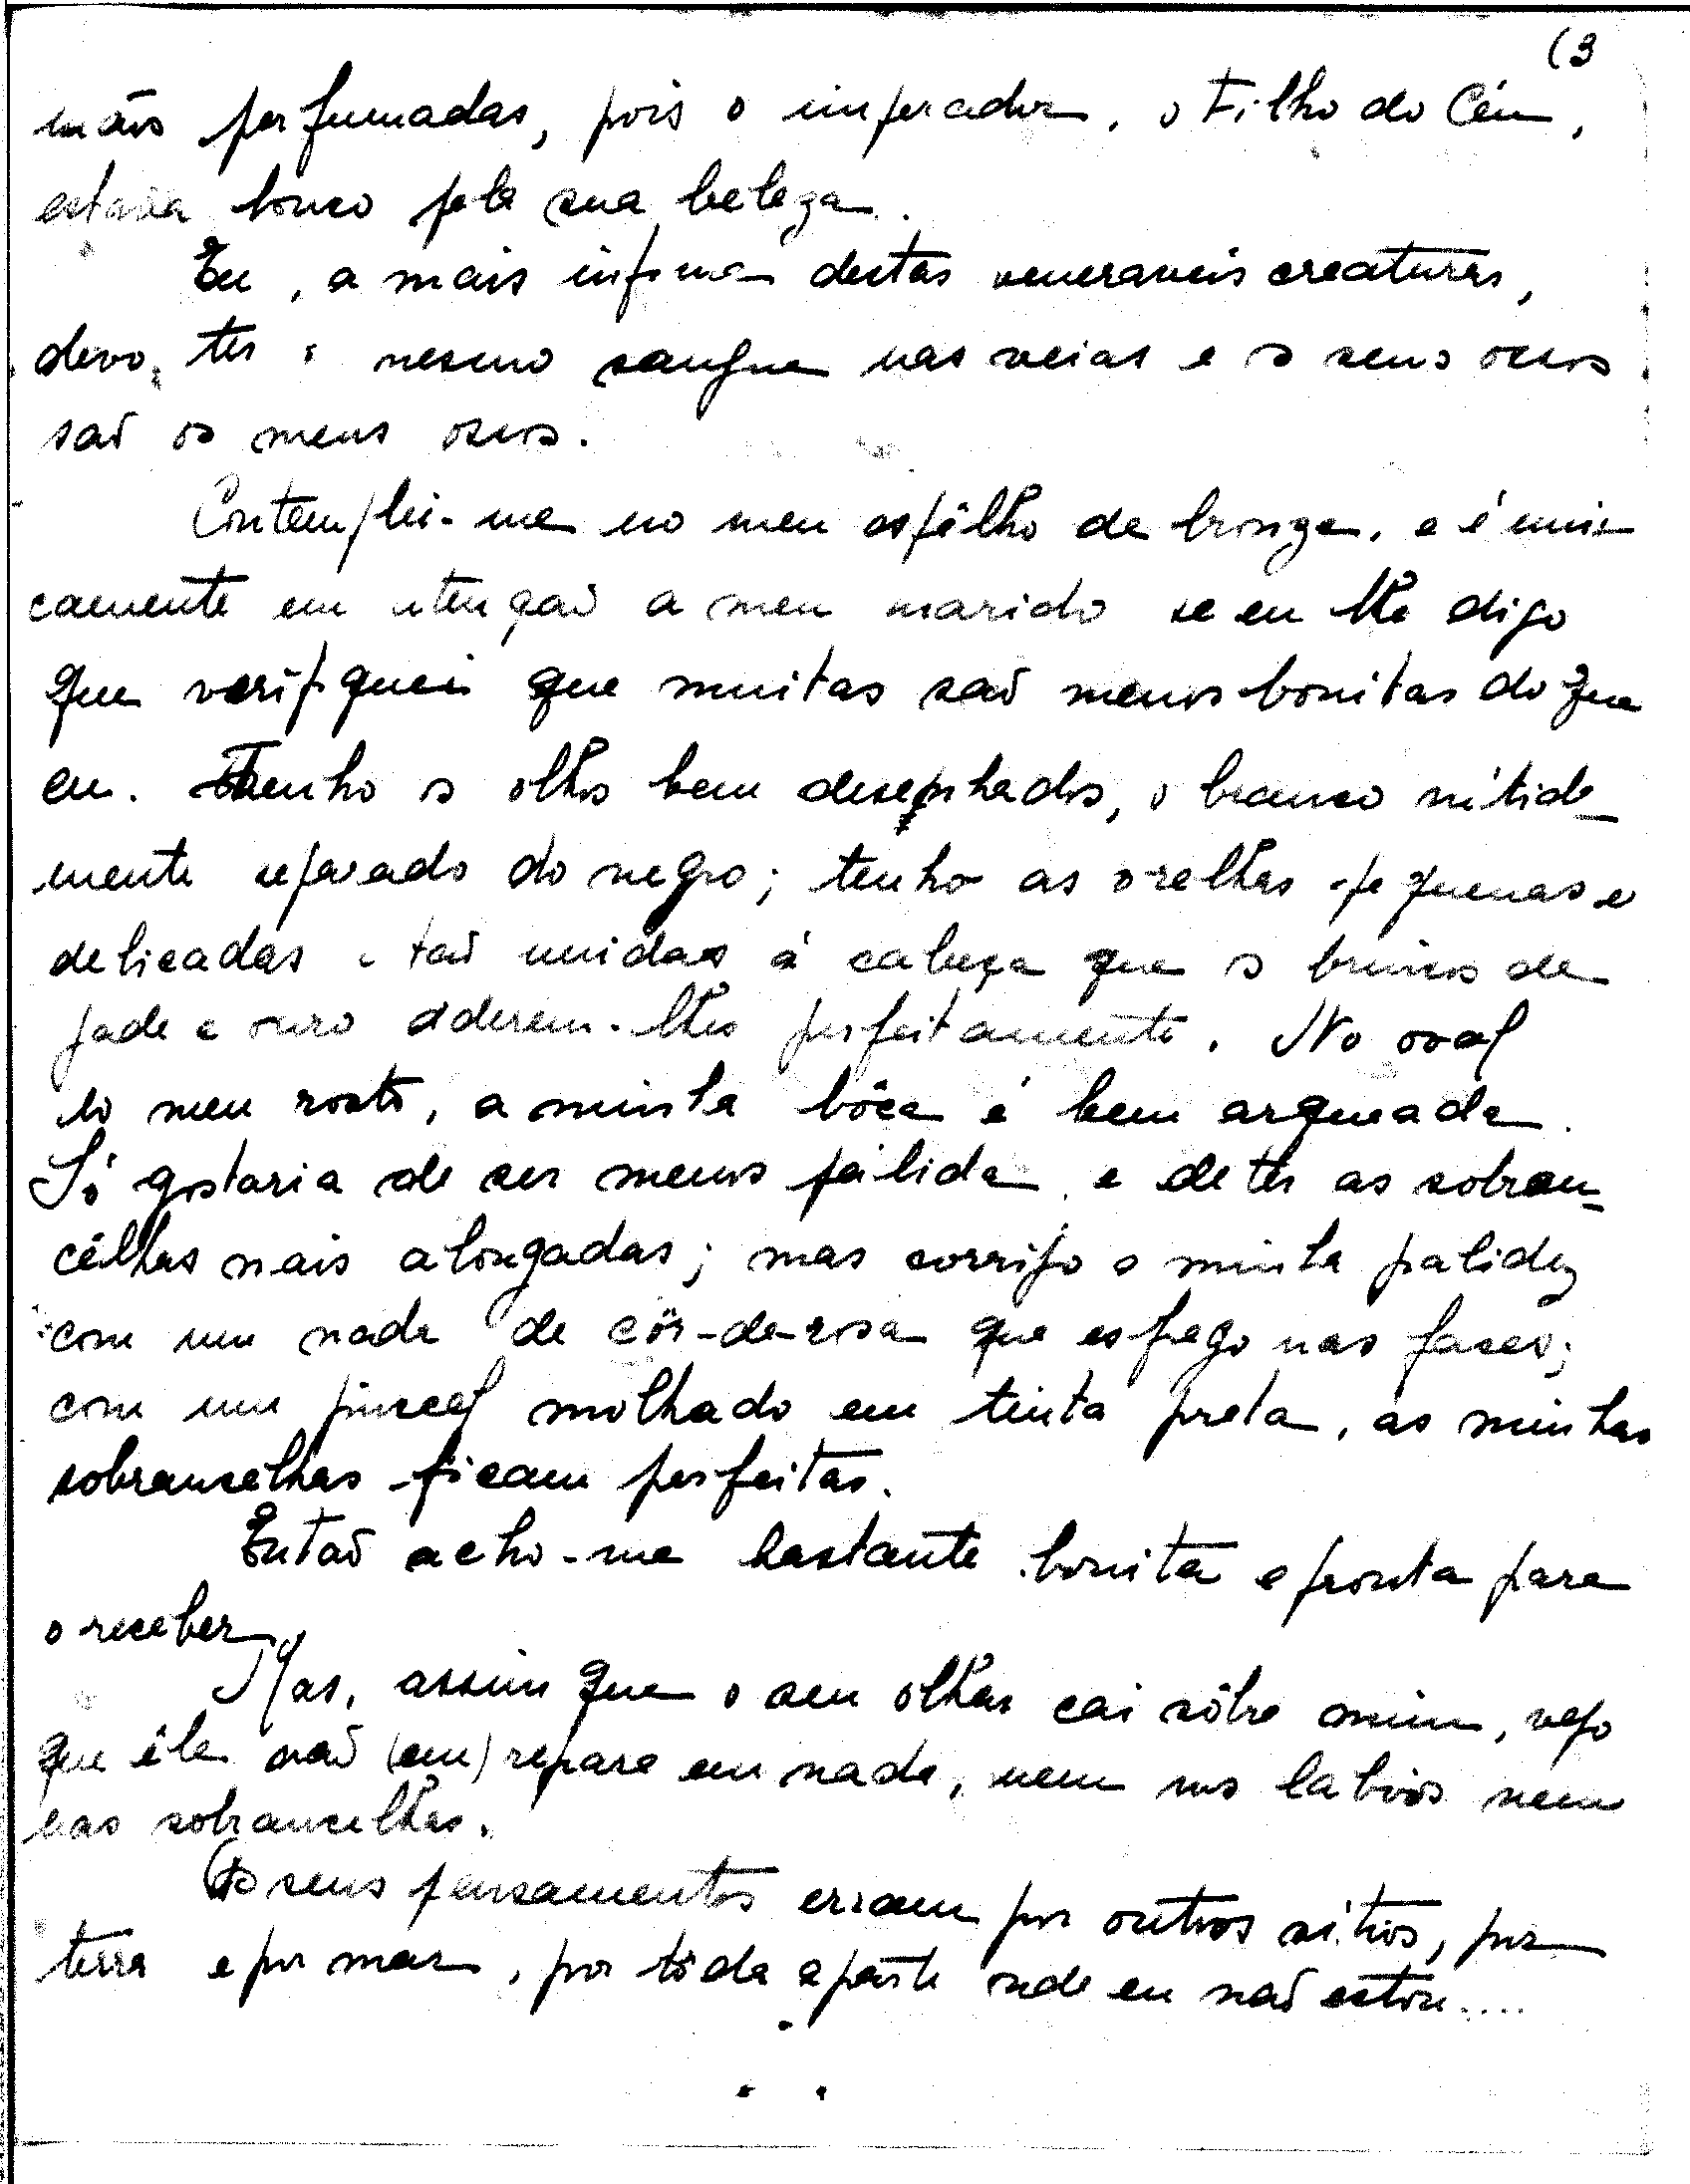 (3
mãos perfumadas, pois o imperador, o Filho do Céu,
estava louco pela sua beleza.
Eu, a mais infima destas veneraveis creaturas,
devo ter o mesmo sangue nas veias e os seus ossos
saõ os meus ossos.
Contemplei-me no meu espêlho de bronze, e é uni-
camente em atençaõ a meu marido se eu lhe digo
que verifiquei que muitas saõ menos bonitas do que
eu. Tenho os olhos bem desenhados, o branco nitida-
mente separado do negro; tenho as orelhas pequenas e
delicadas e taõ unidas á cabeça que os brincos de
jade e ouro aderem-lhes perfeitamente. No oval
do meu rosto, a minha bôca é bem arqueada.
Só gostaria de ser menos pálida e de ter as sobran-
cêlhas mais alongadas; mas corrijo a minha palidez
com um nada de côr-de-rosa que esfrego nas faces;
com um pincel molhado em tinta preta, as minhas
sobrancelhas ficam perfeitas.
Entaõ acho-me bastante bonita e pronta para
o receber.
Mas, assim que o seu olhar cai sôbre mim, vejo
que êle naõ (em) repara em nada, nem nos labios nem
nas sobrancelhas.
Os seus pensamentos erram por outros sitios, por
terra e por mar, por tôda a parte onde eu naõ estou....